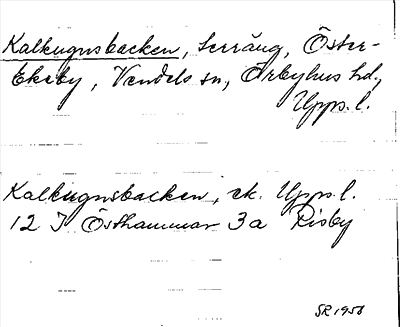 Kalkugnsbacken, terräng, Öster-
Ekeby, Vendels sn, Örbyhus hd,
Upps. l.
Kalkugnsbacken, ek. Upps. l.
12 I Östhammar 3a Risby
SR 1958